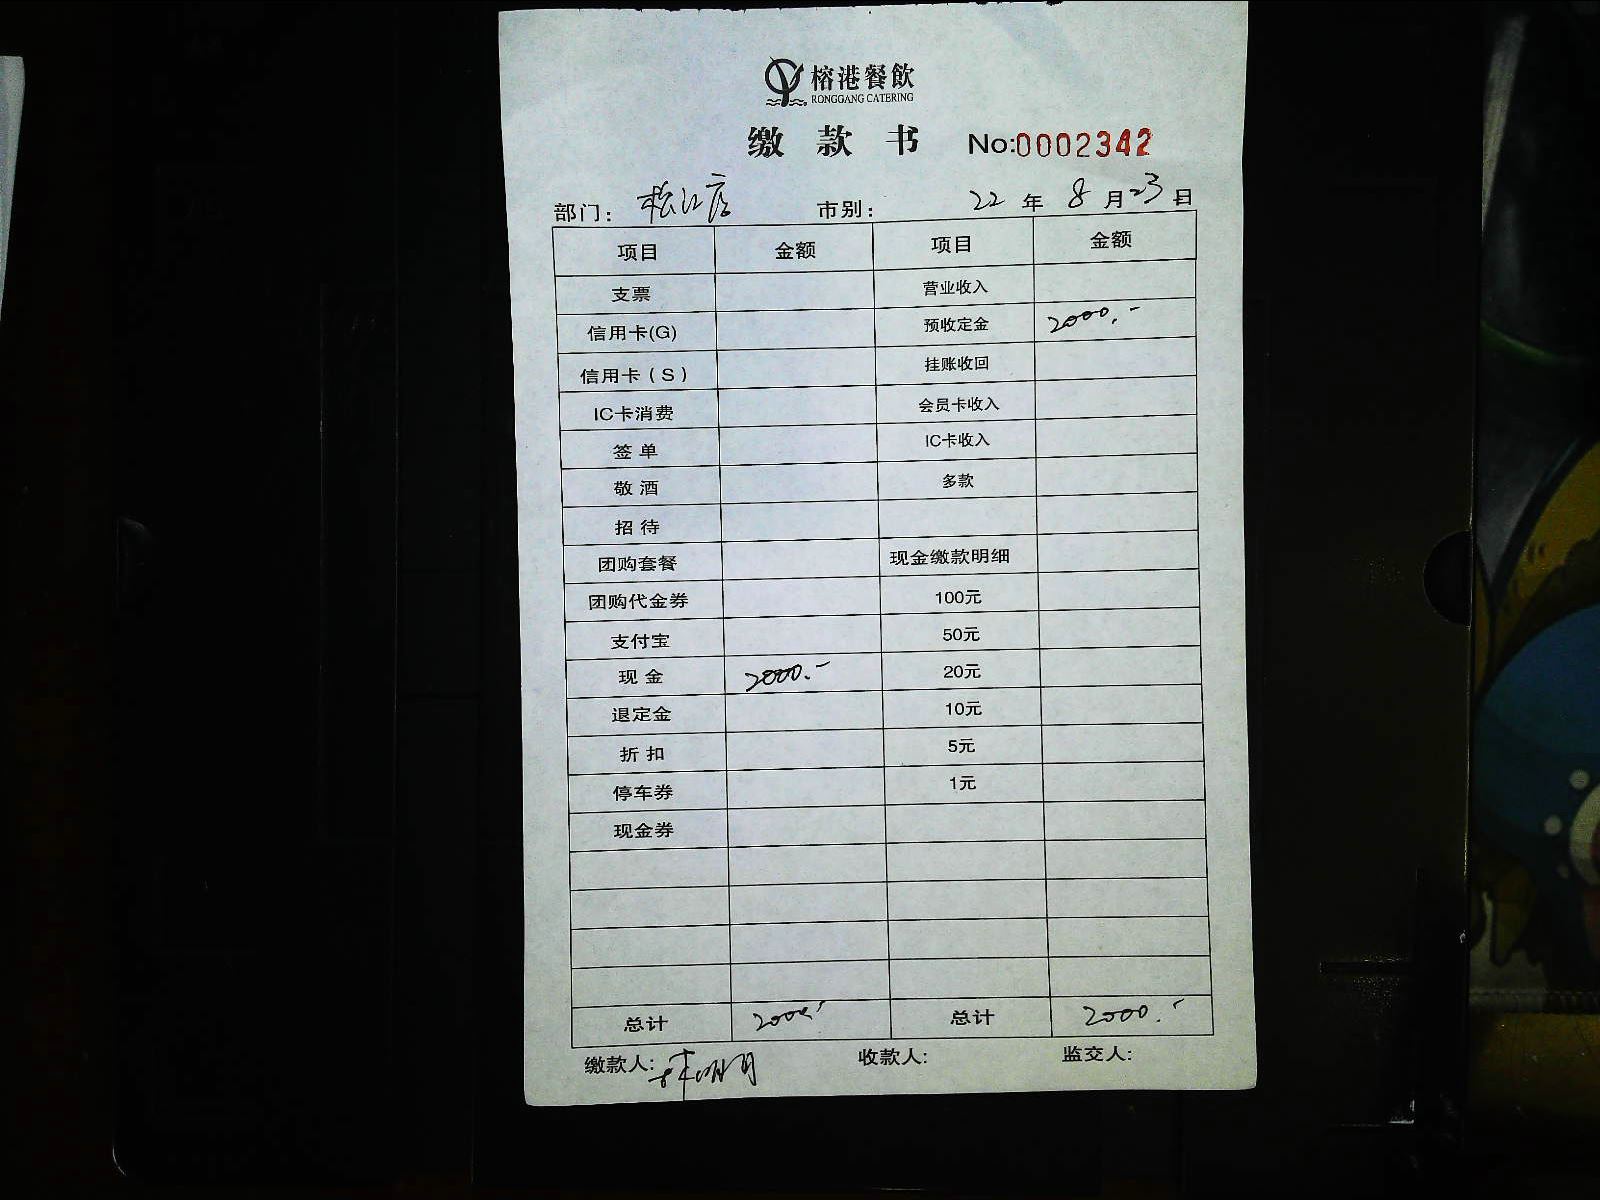 榕港餐飲
RONGGANG CATERING
缴 款 书 No:0002342
部门: 松江店 市别: 22 年 8 月 23 日
项目 金额 项目 金额
支票 营业收入
信用卡(G) 预收定金 2000.-
信用卡(S) 挂账收回
IC卡消费 会员卡收入
签 单 IC卡收入
敬 酒 多款
招 待
团购套餐 现金缴款明细
团购代金券 100元
支付宝 50元
现 金 2000.- 20元
退定金 10元
折 扣 5元
停车券 1元
现金券
总计 2000.- 总计 2000.-
缴款人: 收款人: 监交人: